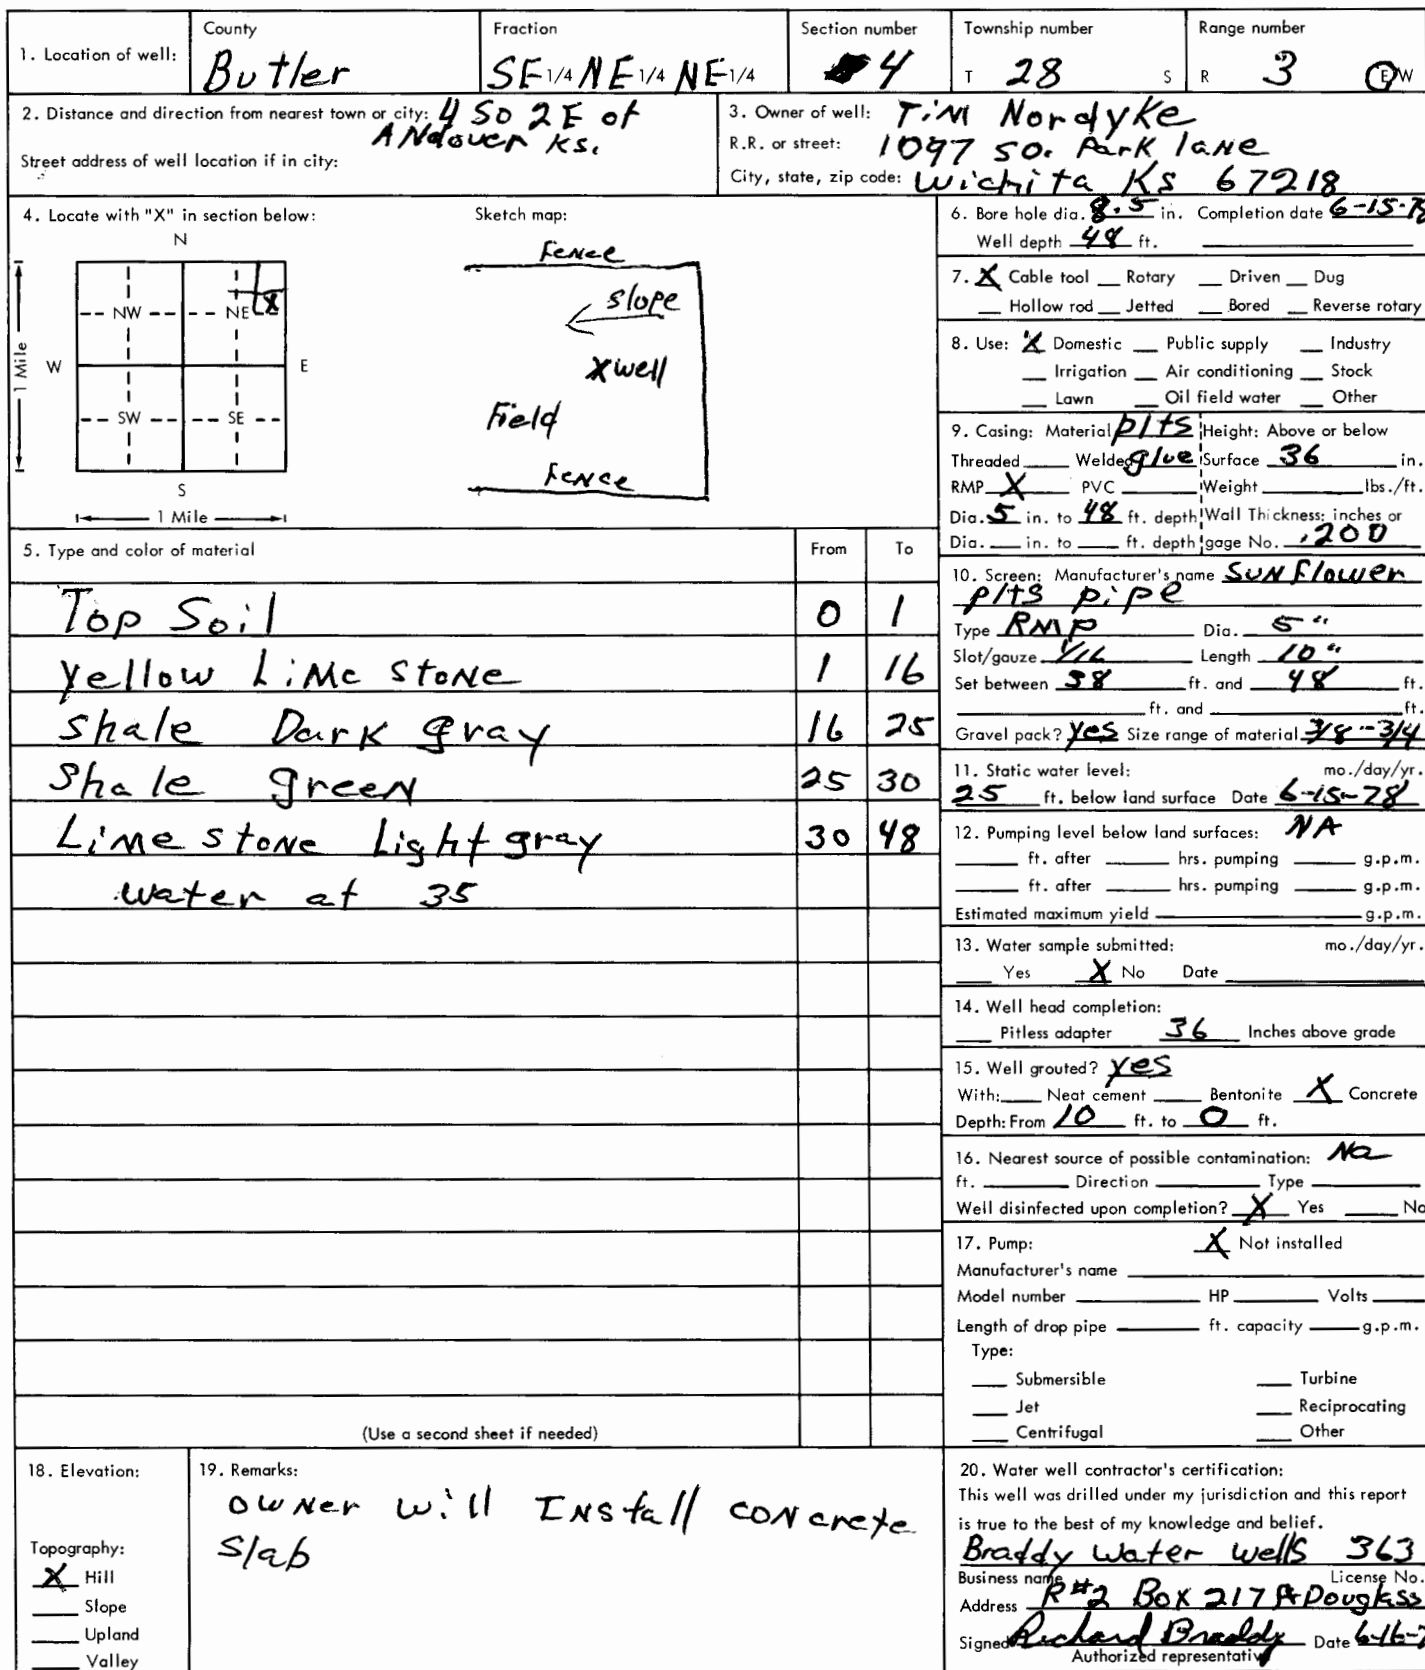 1. Location of well:
County
Butler
Fraction
SE 1/4 NE 1/4 NE 1/4
Section number
4
Township number
T 28 S
Range number
R 3 E W
2. Distance and direction from nearest town or city: 4 So 2 E of
Andover Ks.
Street address of well location if in city:
3. Owner of well: Tim Nordyke
R.R. or street: 1097 So. Park lane
City, state, zip code: Wichita Ks 67218
4. Locate with "X" in section below:
N
NW NE X
W E
SW SE
S
1 Mile
1 Mile
Sketch map:
Fence
slope
X well
Field
Fence
5. Type and color of material From To
Top Soil 0 1
Yellow Lime stone 1 16
Shale Dark gray 16 25
Shale green 25 30
Lime stone Light gray 30 48
water at 35
(Use a second sheet if needed)
6. Bore hole dia. 8.5 in. Completion date 6-15-78
Well depth 48 ft.
7. X Cable tool Rotary Driven Dug
Hollow rod Jetted Bored Reverse rotary
8. Use: X Domestic Public supply Industry
Irrigation Air conditioning Stock
Lawn Oil field water Other
9. Casing: Material plts Height: Above or below
Threaded Welded glue Surface 36 in.
RMP X PVC Weight lbs./ft.
Dia. 5 in. to 48 ft. depth Wall Thickness: inches or
Dia. in. to ft. depth gage No. .200
10. Screen: Manufacturer's name Sunflower
plts pipe
Type RMP Dia. 5"
Slot/gauze 1/16 Length 10"
Set between 38 ft. and 48 ft.
ft. and ft.
Gravel pack? Yes Size range of material 3/8 - 3/4
11. Static water level: mo./day/yr.
25 ft. below land surface Date 6-15-78
12. Pumping level below land surfaces: NA
ft. after hrs. pumping g.p.m.
ft. after hrs. pumping g.p.m.
Estimated maximum yield g.p.m.
13. Water sample submitted: mo./day/yr.
Yes X No Date
14. Well head completion:
Pitless adapter 36 Inches above grade
15. Well grouted? Yes
With: Neat cement Bentonite X Concrete
Depth: From 10 ft. to 0 ft.
16. Nearest source of possible contamination: Na
ft. Direction Type
Well disinfected upon completion? X Yes No
17. Pump: X Not installed
Manufacturer's name
Model number HP Volts
Length of drop pipe ft. capacity g.p.m.
Type:
Submersible Turbine
Jet Reciprocating
Centrifugal Other
18. Elevation:
Topography:
X Hill
Slope
Upland
Valley
19. Remarks:
owner will Install concrete
Slab
20. Water well contractor's certification:
This well was drilled under my jurisdiction and this report
is true to the best of my knowledge and belief.
Braddy Water Wells 363
Business name License No.
Address R#2 Box 217 A Douglass
Signed Richard Braddy Date 6-16-7
Authorized representative